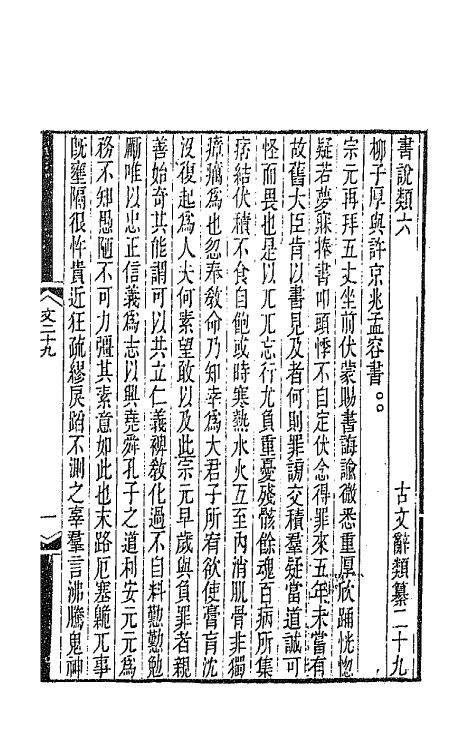 書說類六　古文辭類纂二十九
柳子厚與許京兆孟容書。。
宗元再拜五丈坐前伏蒙賜書誨諭微悉重厚欣踊恍惚
疑若夢寐捧書叩頭悸不自定伏念得罪來五年未嘗有
故舊大臣肯以書見及者何則罪謗交積羣疑當道誠可
怪而畏也是以兀兀忘行尤負重憂殘骸餘魂百病所集
痞結伏積不食自飽或時寒熱水火互至內消肌骨非獨
瘴癘為也忽奉敎命乃知幸為大君子所宥欲使膏肓沈
沒復起為人夫何素望敢以及此宗元早歲與負罪者親
善始奇其能謂可以共立仁義裨敎化過不自料懃懃勉
勵唯以忠正信義為志以興堯舜孔子之道利安元元為
務不知愚陋不可力彊其素意如此也末路厄塞臲兀事
旣壅隔很忤貴近狂疏繆戾蹈不測之辜羣言沸騰鬼神
文二十九
一